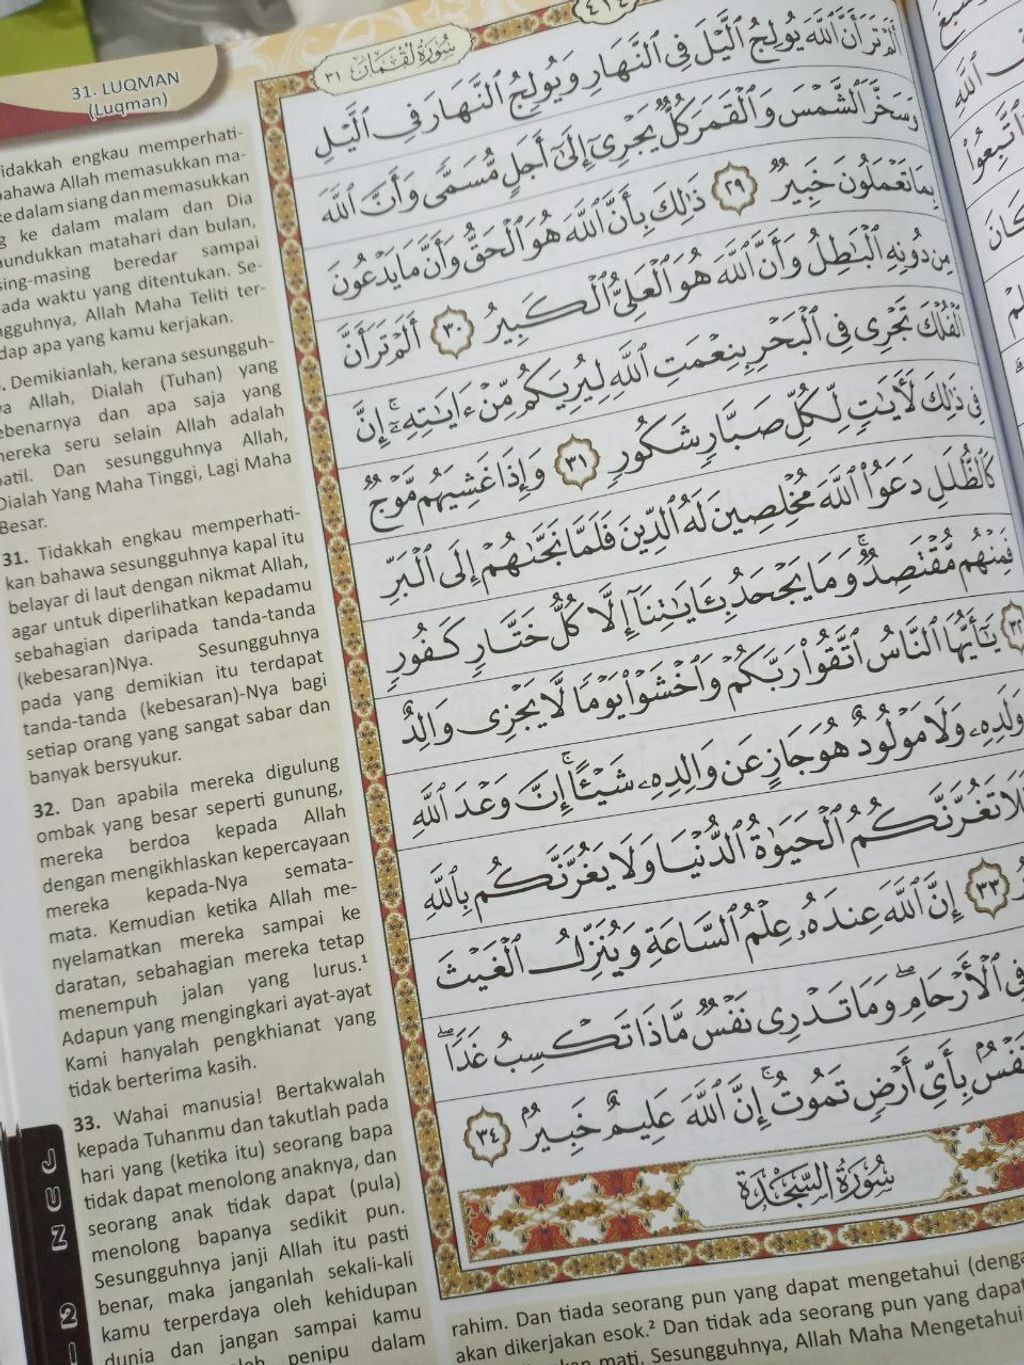 31. LUQMAN
(Luqman)
سُورَةُ لُقْمَان ٣١
٤١٤
أَلَمْ تَرَ أَنَّ ٱللَّهَ يُولِجُ ٱلَّيْلَ فِى ٱلنَّهَارِ وَيُولِجُ ٱلنَّهَارَ فِى ٱلَّيْلِ
وَسَخَّرَ ٱلشَّمْسَ وَٱلْقَمَرَ كُلٌّ يَجْرِىٓ إِلَىٰٓ أَجَلٍ مُّسَمًّى وَأَنَّ ٱللَّهَ
بِمَا تَعْمَلُونَ خَبِيرٌ ٢٩ ذَٰلِكَ بِأَنَّ ٱللَّهَ هُوَ ٱلْحَقُّ وَأَنَّ مَا يَدْعُونَ
مِن دُونِهِ ٱلْبَٰطِلُ وَأَنَّ ٱللَّهَ هُوَ ٱلْعَلِىُّ ٱلْكَبِيرُ ٣٠ أَلَمْ تَرَ أَنَّ
ٱلْفُلْكَ تَجْرِى فِى ٱلْبَحْرِ بِنِعْمَتِ ٱللَّهِ لِيُرِيَكُم مِّنْ ءَايَٰتِهِۦٓ ۚ إِنَّ
فِى ذَٰلِكَ لَءَايَٰتٍ لِّكُلِّ صَبَّارٍ شَكُورٍ ٣١ وَإِذَا غَشِيَهُم مَّوْجٌ
كَٱلظُّلَلِ دَعَوُا۟ ٱللَّهَ مُخْلِصِينَ لَهُ ٱلدِّينَ فَلَمَّا نَجَّىٰهُمْ إِلَى ٱلْبَرِّ
فَمِنْهُم مُّقْتَصِدٌ ۚ وَمَا يَجْحَدُ بِـَٔايَٰتِنَآ إِلَّا كُلُّ خَتَّارٍ كَفُورٍ
٣٢ يَٰٓأَيُّهَا ٱلنَّاسُ ٱتَّقُوا۟ رَبَّكُمْ وَٱخْشَوْا۟ يَوْمًا لَّا يَجْزِى وَالِدٌ
وَلَدِهِۦ وَلَا مَوْلُودٌ هُوَ جَازٍ عَن وَالِدِهِۦ شَيْـًٔا ۚ إِنَّ وَعْدَ ٱللَّهِ
فَلَا تَغُرَّنَّكُمُ ٱلْحَيَوٰةُ ٱلدُّنْيَا وَلَا يَغُرَّنَّكُم بِٱللَّهِ
٣٣ إِنَّ ٱللَّهَ عِندَهُۥ عِلْمُ ٱلسَّاعَةِ وَيُنَزِّلُ ٱلْغَيْثَ
فِى ٱلْأَرْحَامِ ۖ وَمَا تَدْرِى نَفْسٌ مَّاذَا تَكْسِبُ غَدًا ۖ
نَفْسٌۢ بِأَىِّ أَرْضٍ تَمُوتُ ۚ إِنَّ ٱللَّهَ عَلِيمٌ خَبِيرٌۢ ٣٤
سُورَةُ السَّجْدَة
idakkah engkau memperhati-
bahawa Allah memasukkan ma-
ke dalam siang dan memasukkan
g ke dalam malam dan Dia
undukkan matahari dan bulan,
sing-masing beredar sampai
ada waktu yang ditentukan. Se-
ngguhnya, Allah Maha Teliti ter-
dap apa yang kamu kerjakan.
. Demikianlah, kerana sesungguh-
a Allah, Dialah (Tuhan) yang
ebenarnya dan apa saja yang
ereka seru selain Allah adalah
atil. Dan sesungguhnya Allah,
Dialah Yang Maha Tinggi, Lagi Maha
Besar.
31. Tidakkah engkau memperhati-
kan bahawa sesungguhnya kapal itu
belayar di laut dengan nikmat Allah,
agar untuk diperlihatkan kepadamu
sebahagian daripada tanda-tanda
(kebesaran)Nya. Sesungguhnya
pada yang demikian itu terdapat
tanda-tanda (kebesaran)-Nya bagi
setiap orang yang sangat sabar dan
banyak bersyukur.
32. Dan apabila mereka digulung
ombak yang besar seperti gunung,
mereka berdoa kepada Allah
dengan mengikhlaskan kepercayaan
mereka kepada-Nya semata-
mata. Kemudian ketika Allah me-
nyelamatkan mereka sampai ke
daratan, sebahagian mereka tetap
menempuh jalan yang lurus.¹
Adapun yang mengingkari ayat-ayat
Kami hanyalah pengkhianat yang
tidak berterima kasih.
33. Wahai manusia! Bertakwalah
kepada Tuhanmu dan takutlah pada
hari yang (ketika itu) seorang bapa
tidak dapat menolong anaknya, dan
seorang anak tidak dapat (pula)
menolong bapanya sedikit pun.
Sesungguhnya janji Allah itu pasti
benar, maka janganlah sekali-kali
kamu terperdaya oleh kehidupan
dunia dan jangan sampai kamu
oleh penipu dalam
JUZ 21
rahim. Dan tiada seorang pun yang dapat mengetahui (denga
akan dikerjakan esok.² Dan tidak ada seorang pun yang dapat
kan mati. Sesungguhnya, Allah Maha Mengetahui